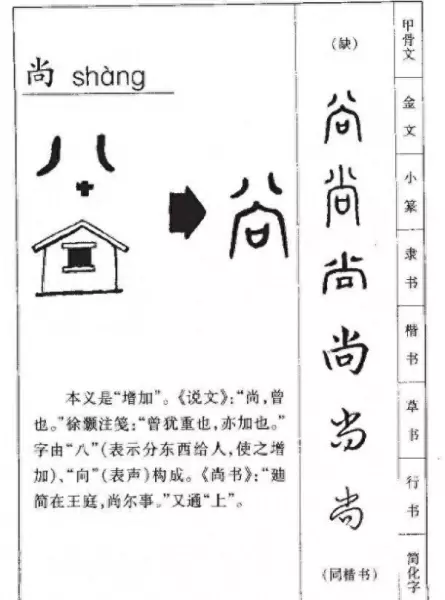 尚 shàng
本义是“增加”。《说文》：“尚，曾
也。”徐灏注笺：“曾犹重也，亦加也。”
字由“八”（表示分东西给人，使之增
加）、“向”（表声）构成。《尚书》：“迪
简在王庭，尚尔事。”又通“上”。
尚
（缺）
尚
尚
尚
尚
尚
尚
（同楷书）
甲骨文
金文
小篆
隶书
楷书
草书
行书
简化字